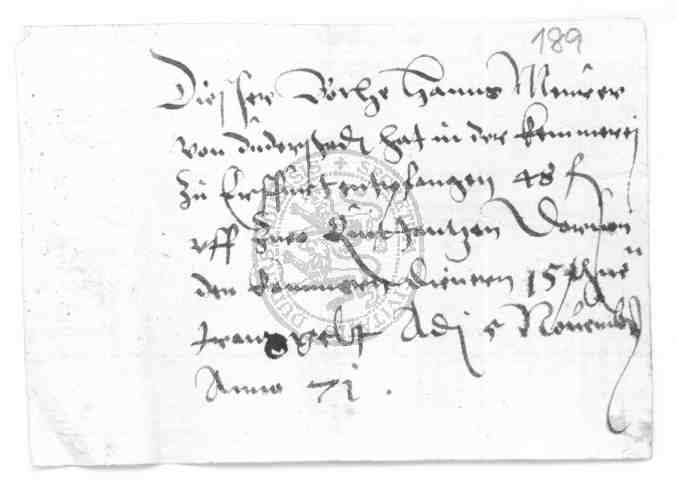 189
Dießer Bothe Hanns Meurer
von Duderstadt hat in der kemmerei
zu Erffurt entpfangen 48 f
uff zwo quitantzen
den kemmerei dienern 15
tranckgelt Adj 5 Novemb
Anno 71.